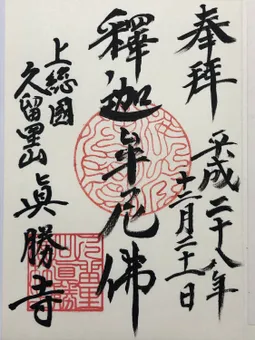 奉拝
平成二十八年
十二月二十一日
釋迦牟尼佛
上総國
久留里山
眞勝寺